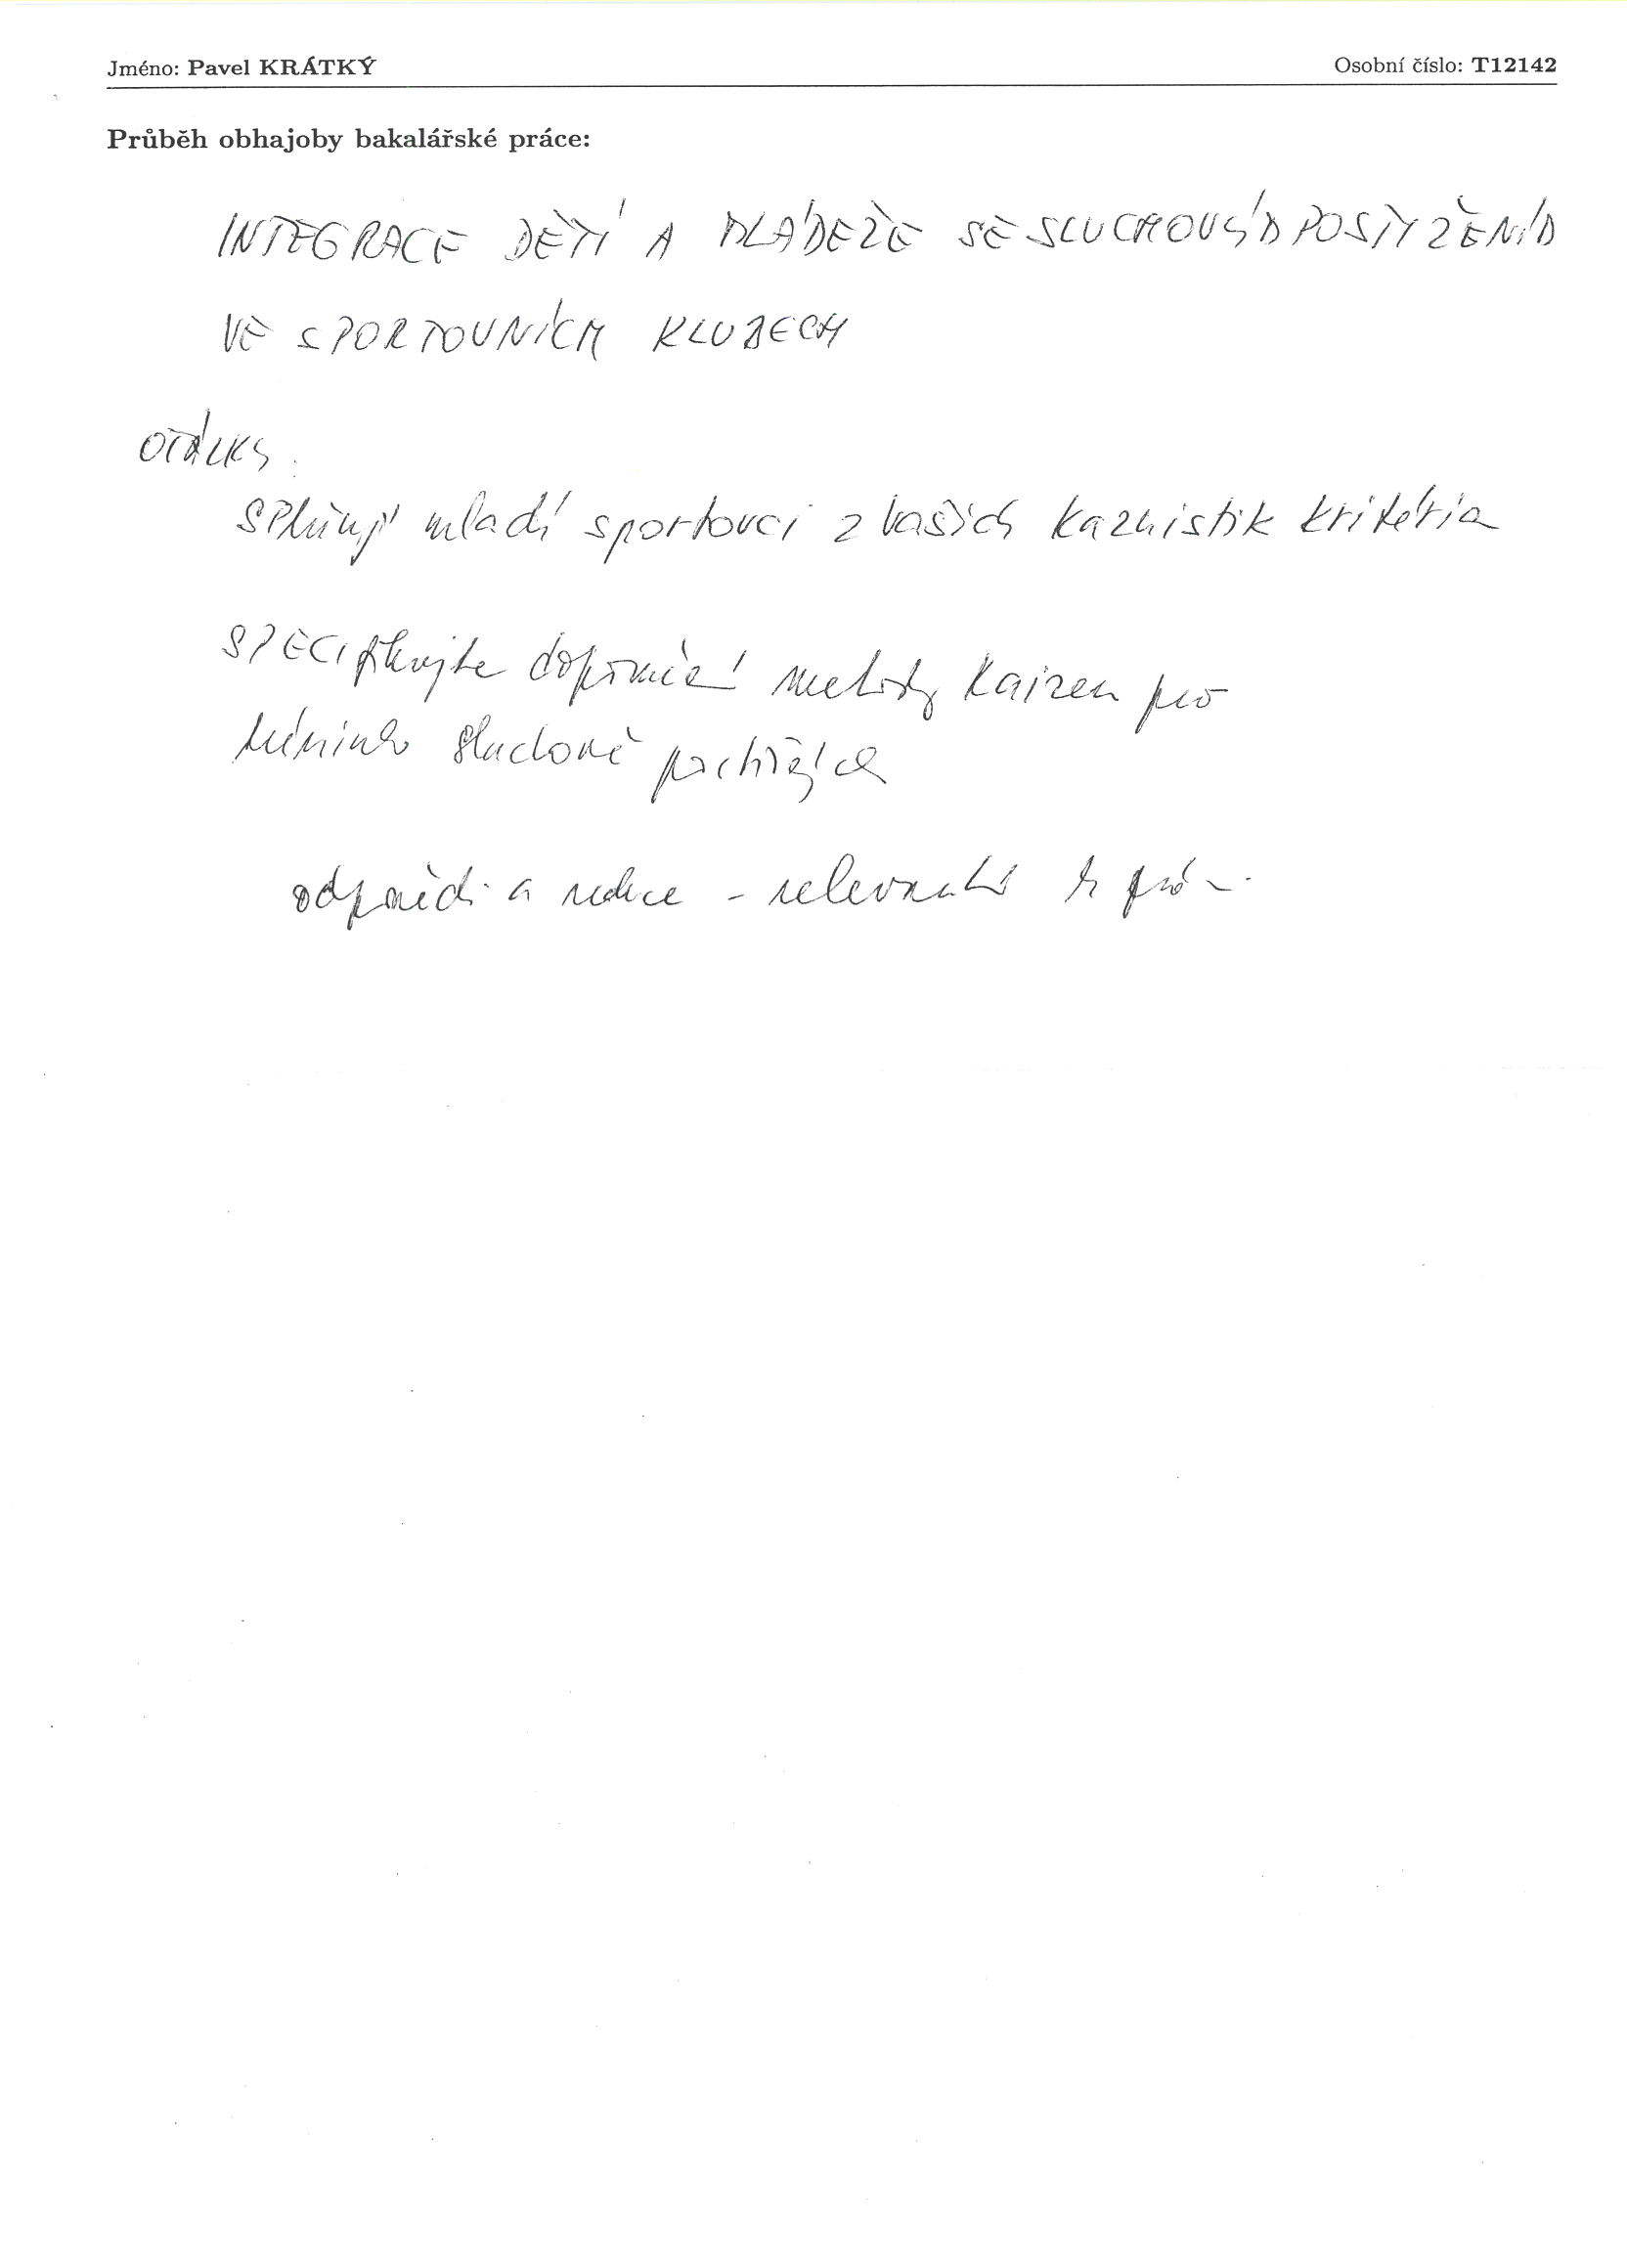 Jméno: Pavel KRÁTKÝ Osobní číslo: T12142
Průběh obhajoby bakalářské práce:
INTEGRACE DĚTÍ A MLÁDEŽE SE SLUCHOVÝM POSTIŽENÍM
VE SPORTOVNÍCH KLUBECH
OTÁZKY:
SPlňují mladí sportovci z vašich kazuistik kritéria
SPECifikujte doporučení metody Kaizen pro
trénink sluchově postižených
odpovědi a reakce - relevantní k